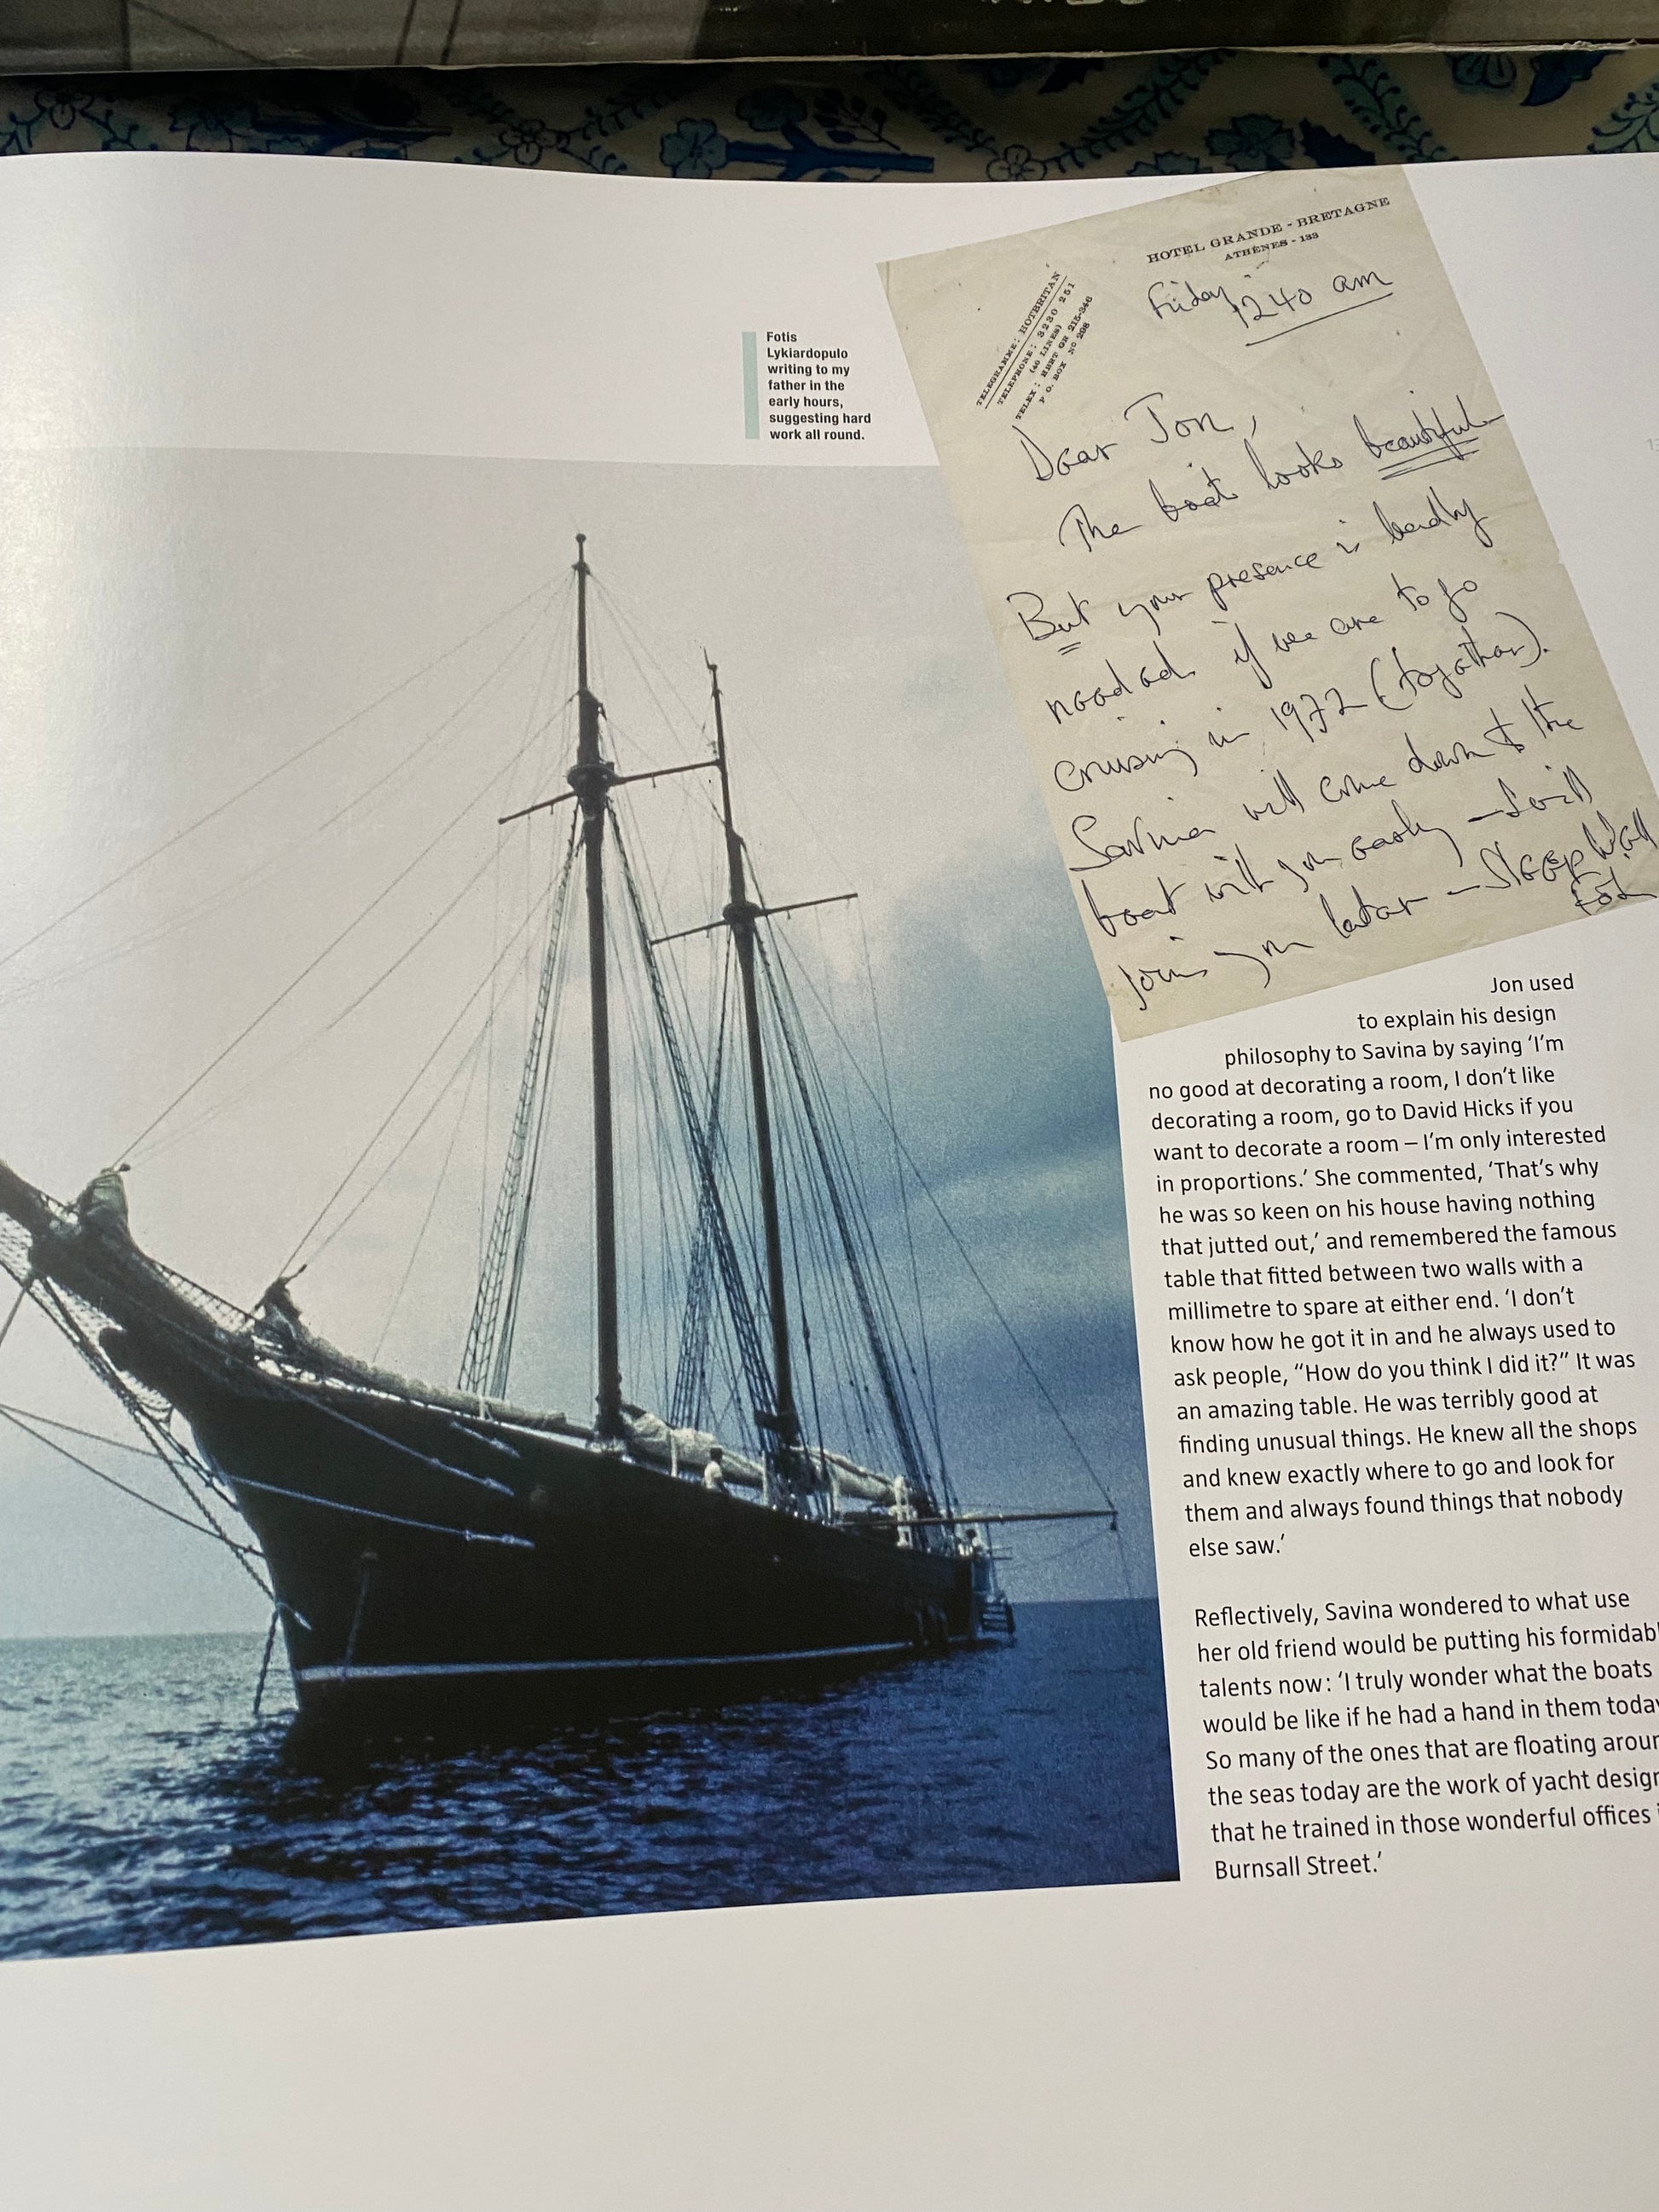 HOTEL GRANDE - BRETAGNE
ATHÈNES - 133
TELEGRAMME: HOTBRITAN
TELEPHONE: 3230 251
(40 LINES)
TELEX: HBRT GR 215-346
P. O. BOX Nº 298
Friday
1240 am
Dear Jon,
The boat looks beautiful
But your presence is badly
needed if we are to go
cruising in 1972 (together).
Savina will come down to the
boat with you early – I will
join you later – Sleep Well
Fotis
Fotis
Lykiardopulo
writing to my
father in the
early hours,
suggesting hard
work all round.
Jon used
to explain his design
philosophy to Savina by saying ‘I’m
no good at decorating a room, I don’t like
decorating a room, go to David Hicks if you
want to decorate a room – I’m only interested
in proportions.’ She commented, ‘That’s why
he was so keen on his house having nothing
that jutted out,’ and remembered the famous
table that fitted between two walls with a
millimetre to spare at either end. ‘I don’t
know how he got it in and he always used to
ask people, “How do you think I did it?” It was
an amazing table. He was terribly good at
finding unusual things. He knew all the shops
and knew exactly where to go and look for
them and always found things that nobody
else saw.’
Reflectively, Savina wondered to what use
her old friend would be putting his formidabl
talents now: ‘I truly wonder what the boats
would be like if he had a hand in them today
So many of the ones that are floating aroun
the seas today are the work of yacht design
that he trained in those wonderful offices i
Burnsall Street.’